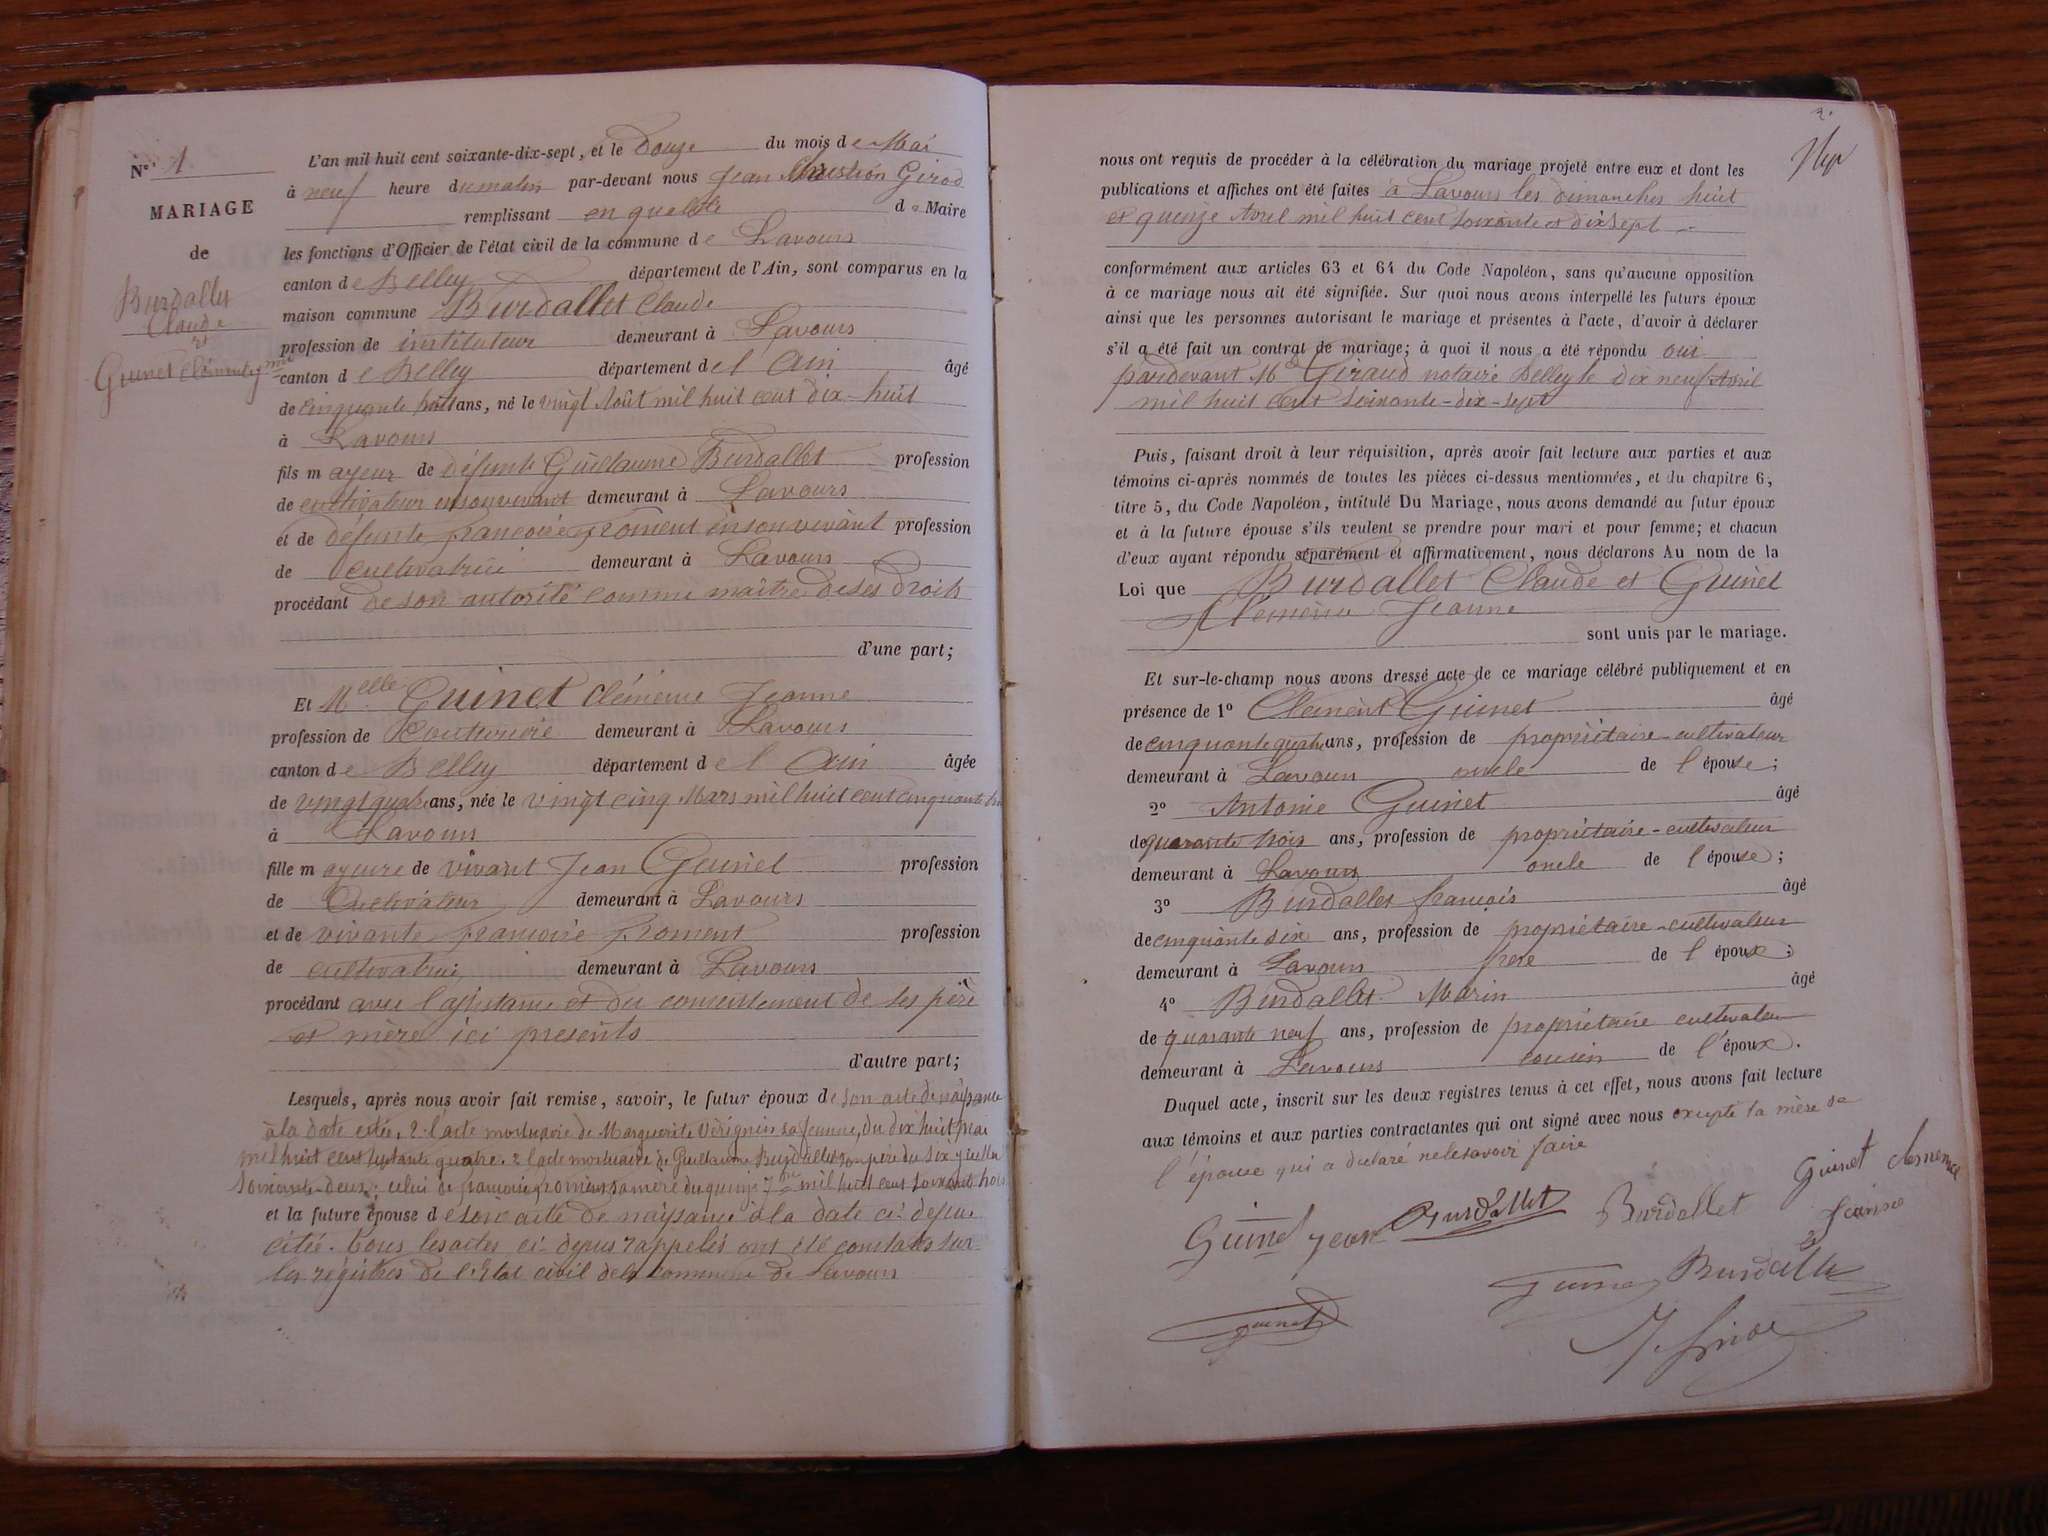 N° 1
MARIAGE
de
Burdallet
Claude
et
Guinet Clémence
L'an mil huit cent soixante-dix-sept, et le Douze du mois de Mai
à neuf heure du matin par-devant nous Jean Girod
remplissant en qualité de Maire
les fonctions d'Officier de l'état civil de la commune de Lavours
canton de Belley département de l'Ain, sont comparus en la
maison commune Burdallet Claude
profession de instituteur demeurant à Lavours
canton de Belley département de l'Ain âgé
de cinquante huit ans, né le vingt Août mil huit cent dix-huit
à Lavours
fils mayeur de défunt Guillaume Burdallet profession
de cultivateur en son vivant demeurant à Lavours
et de défunte françoise froment en son vivant profession
de cultivatrice demeurant à Lavours
procédant de son autorité comme maître de ses droits
d'une part;
Et Melle Guinet Clémence Jeanne
profession de Couturière demeurant à Lavours
canton de Belley département de l'Ain âgée
de vingt quatre ans, née le vingt cinq Mars mil huit cent cinquante trois
à Lavours
fille mayeure de vivant Jean Guinet profession
de Cultivateur demeurant à Lavours
et de vivante françoise froment profession
de cultivatrice demeurant à Lavours
procédant avec l'assistance et du consentement de ses père
et mère ici présents
d'autre part;
Lesquels, après nous avoir fait remise, savoir, le futur époux de son acte de naissance
à la date citée, 2° l'acte mortuaire de Marguerite sa femme, du dix huit mai
mil huit cent septante quatre. 2 l'acte mortuaire de Guillaume Burdallet son père du six juillet
soixante-deux; celui de françoise froment sa mère du quinze 7bre mil huit cent soixante trois
et la future épouse de son acte de naissance à la date ci-dessus
citée. Tous les actes ci-dessus rappelés ont été constatés sur
les registres de l'Etat civil de la commune de Lavours
2.
nous ont requis de procéder à la célébration du mariage projeté entre eux et dont les
publications et affiches ont été faites à Lavours les dimanches huit
et quinze Avril mil huit cent soixante et dix sept
conformément aux articles 63 et 64 du Code Napoléon, sans qu'aucune opposition
à ce mariage nous ait été signifiée. Sur quoi nous avons interpellé les futurs époux
ainsi que les personnes autorisant le mariage et présentes à l'acte, d'avoir à déclarer
s'il a été fait un contrat de mariage; à quoi il nous a été répondu oui
pardevant Me Giraud notaire Belley le dix neuf Avril
mil huit cent soixante-dix-sept
Puis, faisant droit à leur réquisition, après avoir fait lecture aux parties et aux
témoins ci-après nommés de toutes les pièces ci-dessus mentionnées, et du chapitre 6,
titre 5, du Code Napoléon, intitulé Du Mariage, nous avons demandé au futur époux
et à la future épouse s'ils veulent se prendre pour mari et pour femme; et chacun
d'eux ayant répondu séparément et affirmativement, nous déclarons Au nom de la
Loi que Burdallet Claude et Guinet
Clémence Jeanne
sont unis par le mariage.
Et sur-le-champ nous avons dressé acte de ce mariage célébré publiquement et en
présence de 1° Clément Guinet âgé
de cinquante quatre ans, profession de propriétaire-cultivateur
demeurant à Lavours oncle de l'épouse;
2° Antoine Guinet âgé
de quarante trois ans, profession de propriétaire-cultivateur
demeurant à Lavours oncle de l'épouse;
3° Burdallet françois âgé
de cinquante six ans, profession de propriétaire-cultivateur
demeurant à Lavours frère de l'époux;
4° Burdallet Marin âgé
de quarante neuf ans, profession de propriétaire cultivateur
demeurant à Lavours cousin de l'époux.
Duquel acte, inscrit sur les deux registres tenus à cet effet, nous avons fait lecture
aux témoins et aux parties contractantes qui ont signé avec nous excepté la mère de
l'épouse qui a déclaré ne le savoir faire
Guinet Jean Burdallet Burdallet Guinet Clemence
Jeanne
Guinet Burdallet
Guinet